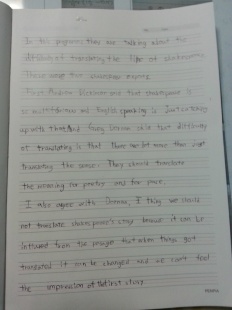 In this program they are talking about the
difficulty of translating the of shakespeare
These are shakespeare experts
First, Andrew Dickson said that shakespeare is
so and English speaking is just catching
up with that. And Jenny Wong said that difficulty
of translating is that There are lot more than just
translating the sense. They should translate
the meaning for poetry and for pace.
I also agree with Dennis, I thing we should
not translate shakespeare's story because it can be
inferred from the passage that when things get
translated it can be changed and we can't feel
the impression of the first story.